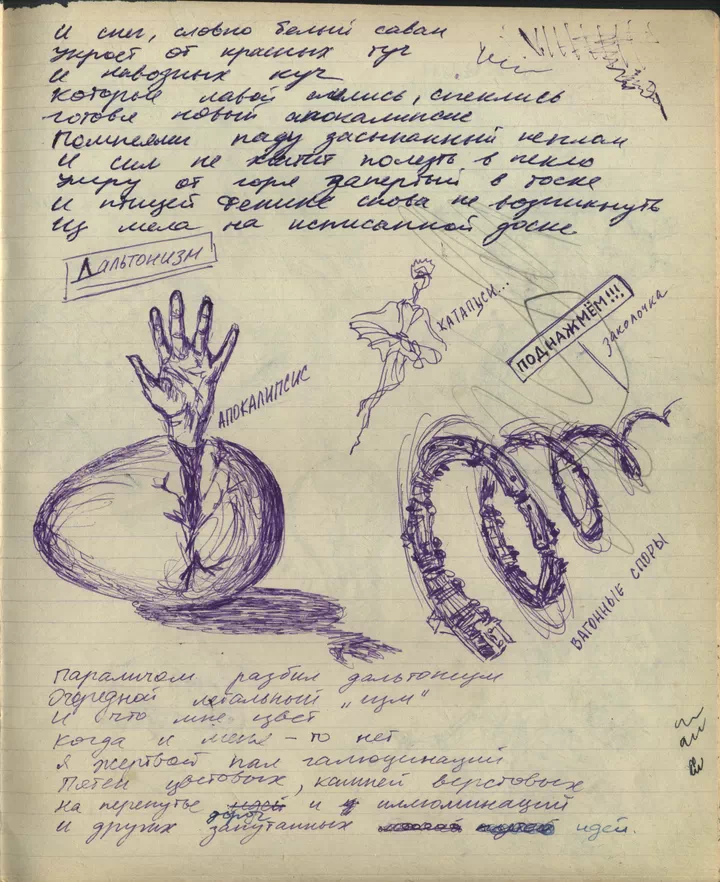 И снег, словно белый саван
Укроет от красных туч
И навозных куч
Которые лавой слились, спеклись
Готовя новый апокалипсис
Помпеями паду засыпанный пеплом
И сил не хватит полезть в пекло
Умру от горя запертый в тоске
И птицей Феникс снова не возникнуть
Из мела на исписанной доске
Дальтонизм
КАТАПУСИ...
ПОДНАЖМЁМ!!!
Заколочка
АПОКАЛИПСИС
ВАГОННЫЕ СПОРЫ
Параличом разбил дальтонизм
Очередной летальный „изм"
И что мне цвет
Когда и меня-то нет
Я жертвой пал галюцинаций
Пятен цветовых, камней верстовых
На перепутье дорог и иллюминаций
И других запутанных идей.